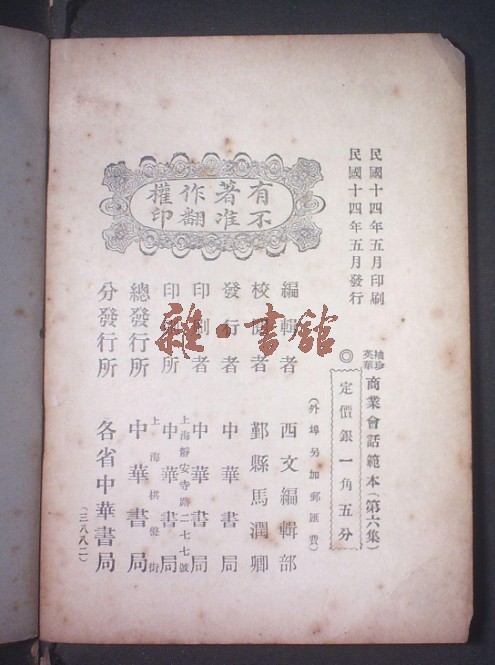 民國十四年五月印刷
民國十四年五月發行
有著作權
不准翻印
袖珍英華商業會話範本（第六集）
◎定價銀一角五分
（外埠另加郵匯費）
編輯者 西文編輯部
校閱者 鄞縣馬潤卿
發行者 中華書局
印刷者 中華書局
上海靜安寺路二七七號
印刷所 中華書局
上海棋盤街
總發行所 中華書局
分發行所 各省中華書局
（三八八二）
雜·書館